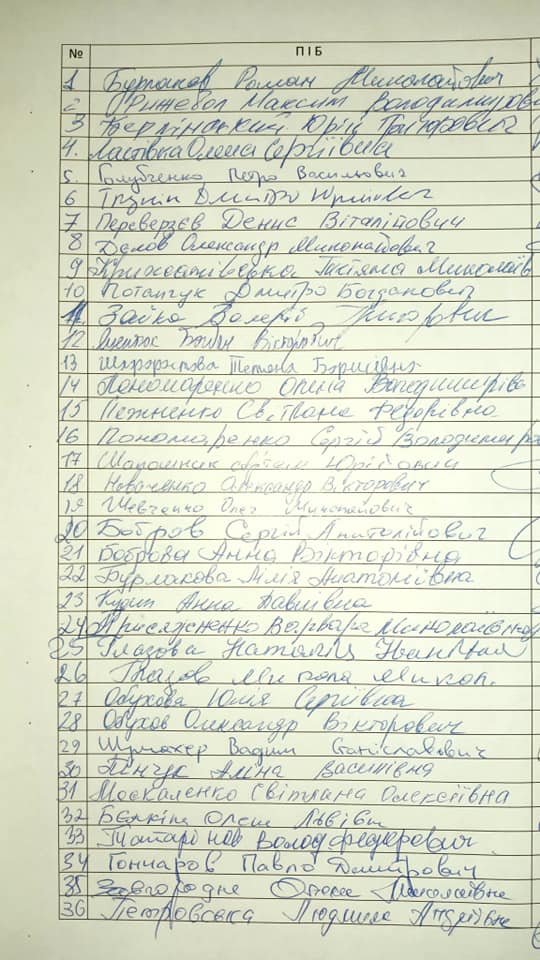 № ПІБ
1 Бурлаков Роман Миколайович
2 Максим Володимирови
3 Юрій
4. Ластівка Олена Сергіївна
5. Голубченко Петро Васильович
6 Дмитро Юрійович
7 Переверзєв Денис Віталійович
8 Олександр Миколайович
9 Тетяна Миколаїв
10 Потапчук Дмитро Богданович
11. Зайко Валерій Григорович
12 Вікторович
13 Тетяна Борисівна
14 Пономаренко Олена Володимирівн
15 Світлана Федорівна
16 Пономаренко Сергій Володимиро
17 Шапошник Юрійович
18 Новаченко Олександр Вікторович
19 Шевченко Олег Миколайович
20 Бобров Сергій Анатолійович
21 Боброва Анна Вікторівна
22 Бурлакова Лілія Анатоліївна
23 Анна Павлівна
24 Присяженко Варвара Миколаївна
25 Глазова Наталія Іванівна
26 Глазов Микола Микол.
27 Обухова Юлія Сергіївна
28 Обухов Олександр Вікторович
29 Шумахер Вадим Станіславович
30 Пінчук Аліна Василівна
31 Москаленко Світлана Олексіївна
32 Бєлкіна
33 Татарінов Волод Федорович
34 Гончаров Павло Дмитрович
35 Миколаївна
36 Петровська Людмила Андріївна